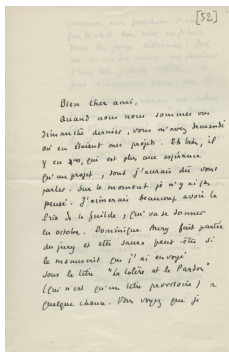 [52]
Bien cher ami,
Quand nous nous sommes vus
dimanche dernier, vous m'avez demandé
où en étaient mes projets. Eh bien, il
y en a un, qui est plus une espérance
qu'un projet, dont j'aurais dû vous
parler. Sur le moment je n'y ai pas
pensé. J'aimerais beaucoup avoir le
Prix de la Guilde, qui va se donner
en octobre. Dominique Aury fait partie
du jury et elle saura peut être si
le manuscrit que j'ai envoyé
sous le titre "La Colère et le Pardon"
(qui n'est qu'un titre provisoire) a
quelque chance. Vous voyez que je